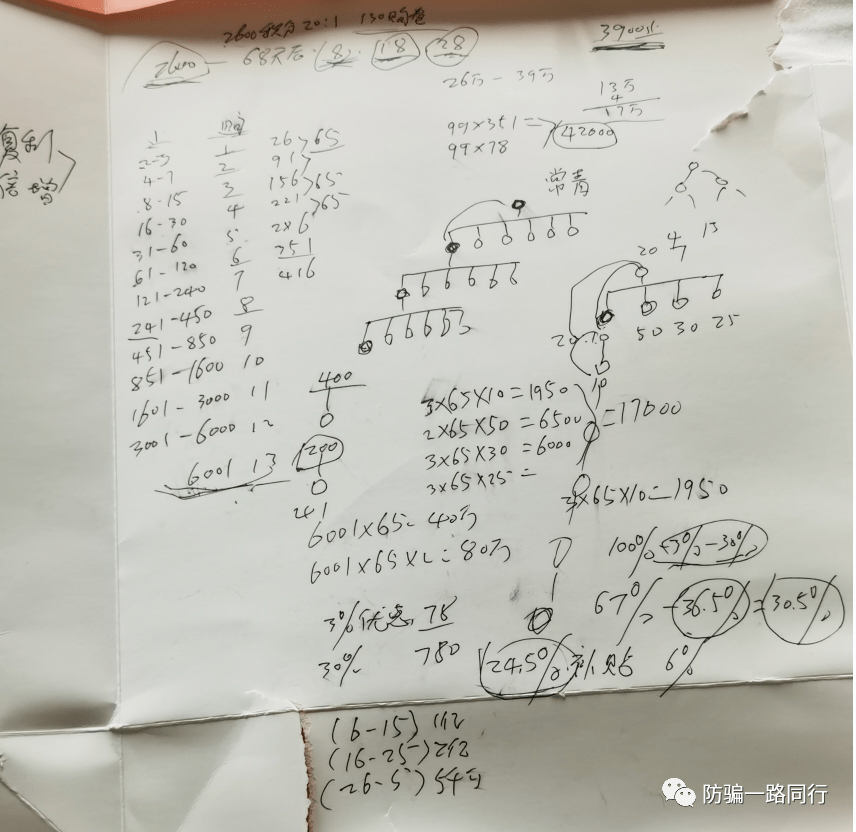 2600积分20:1 130购卷
2600 - 68天后 8. 18 28
3900业
26万-39万
13万
4
17万
99×351=
99×78
42000
复制
倍增
1
1
2-3
2
4-7
3
8-15
4
16-30
5
31-60
6
61-120
7
121-240
8
241-450
9
451-850
10
851-1600
11
1601-3000
12
3001-6000
13
6001
26>65
91
156>65
221>65
286
351
416
常青
20 4 13
7
50 30 25
400
200
241
3×65×10=1950
2×65×50=6500
3×65×30=6000
3×65×25=
=17000
10
×65×10=1950
6001×65=40万
6001×65×2=80万
100%+3%-30%
67%-36.5%=30.5%
3%优惠 78
30% 780
24.5%补贴 6%
(6-15)
(16-25)
(26-5)
防骗一路同行